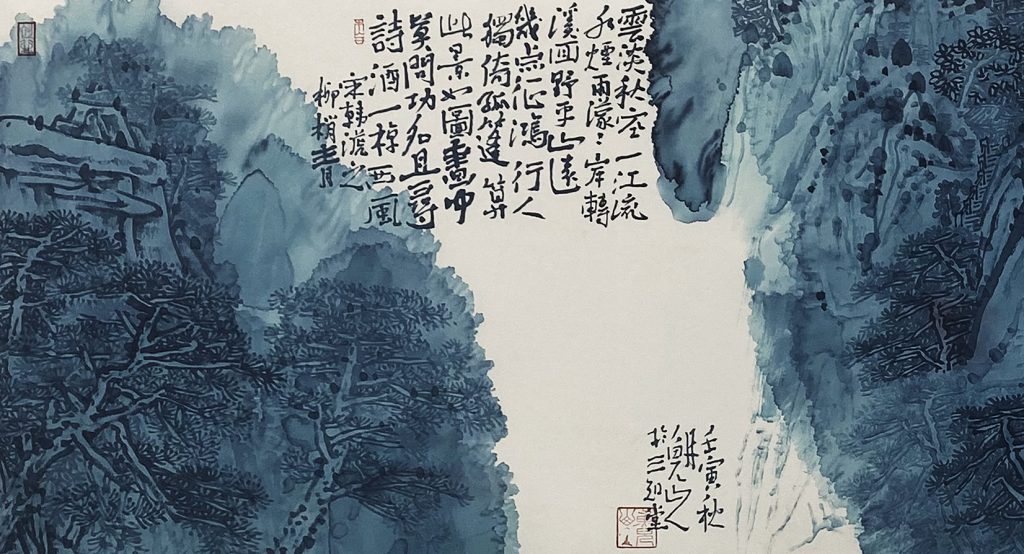 雲淡秋空一江流
水煙雨濛〻岸轉
溪回野平山遠
幾点征鴻行人
獨倚孤篷算
此景如圖畫中
莫問功名且尋
詩酒一棹西風
宋韓淲之
柳梢青
壬寅秋
山人
於三知堂